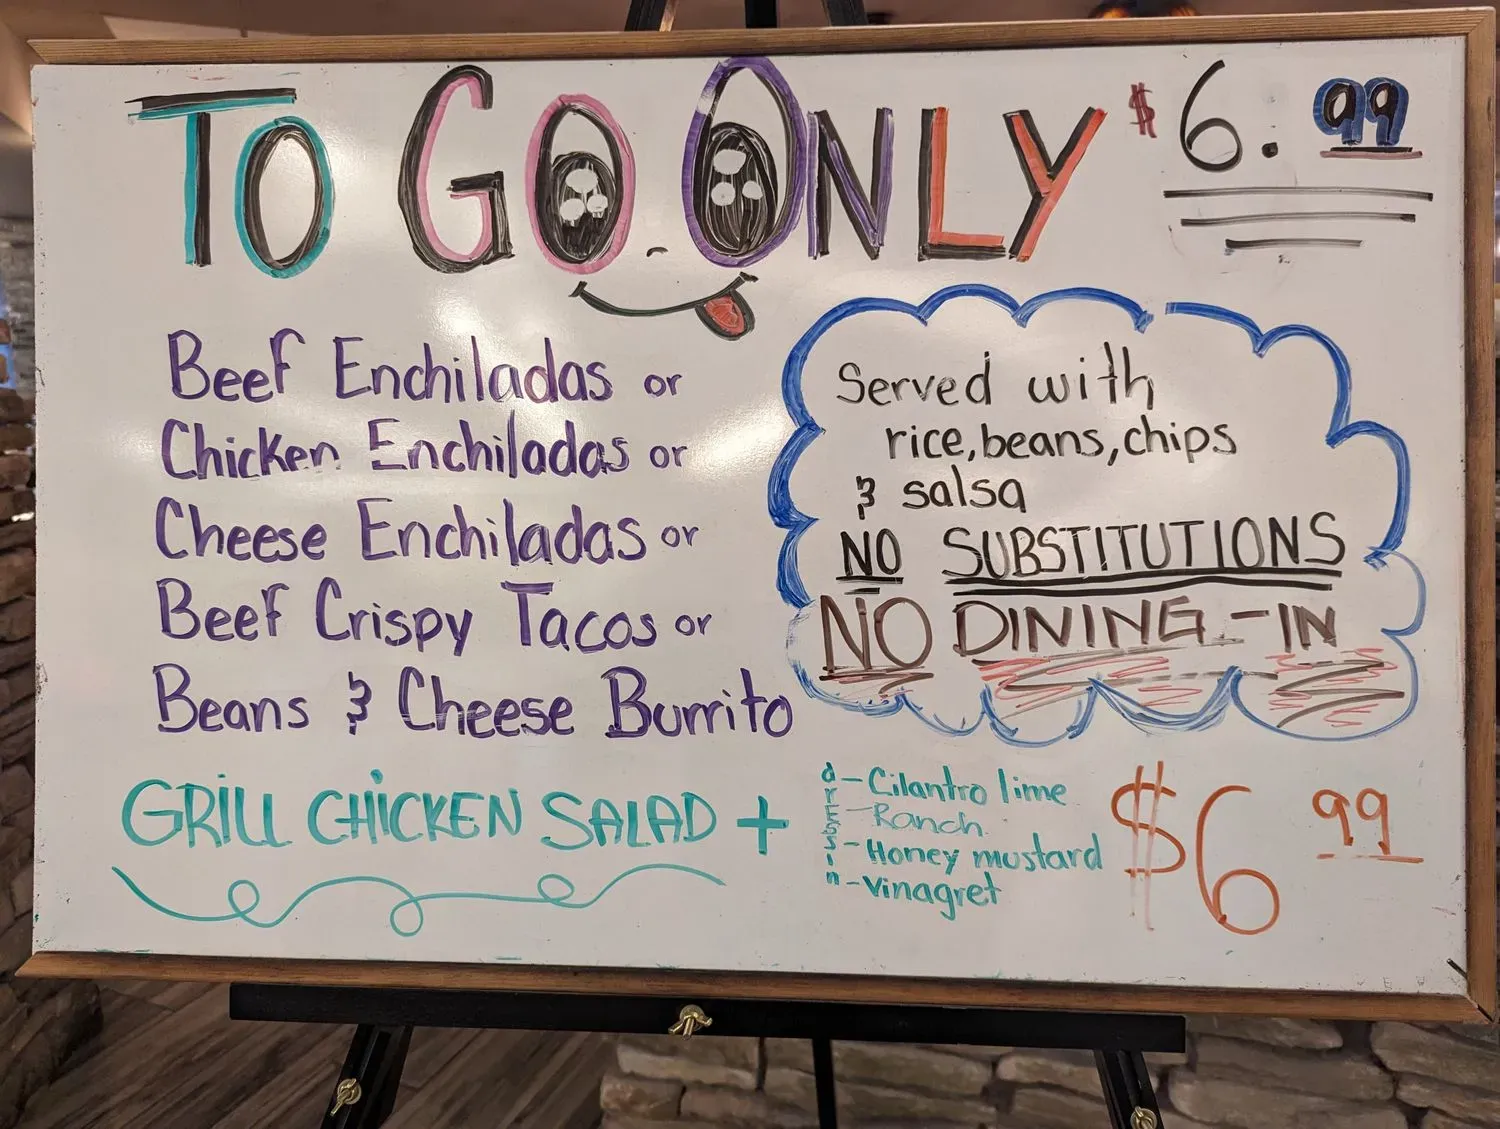 TO GO ONLY $6.99
Beef Enchiladas or
Chicken Enchiladas or
Cheese Enchiladas or
Beef Crispy Tacos or
Beans & Cheese Burrito
Served with
rice, beans, chips
& salsa
NO SUBSTITUTIONS
NO DINING-IN
GRILL CHICKEN SALAD +
drEssin
- Cilantro lime
- Ranch
- Honey mustard
- Vinagret
$6 99